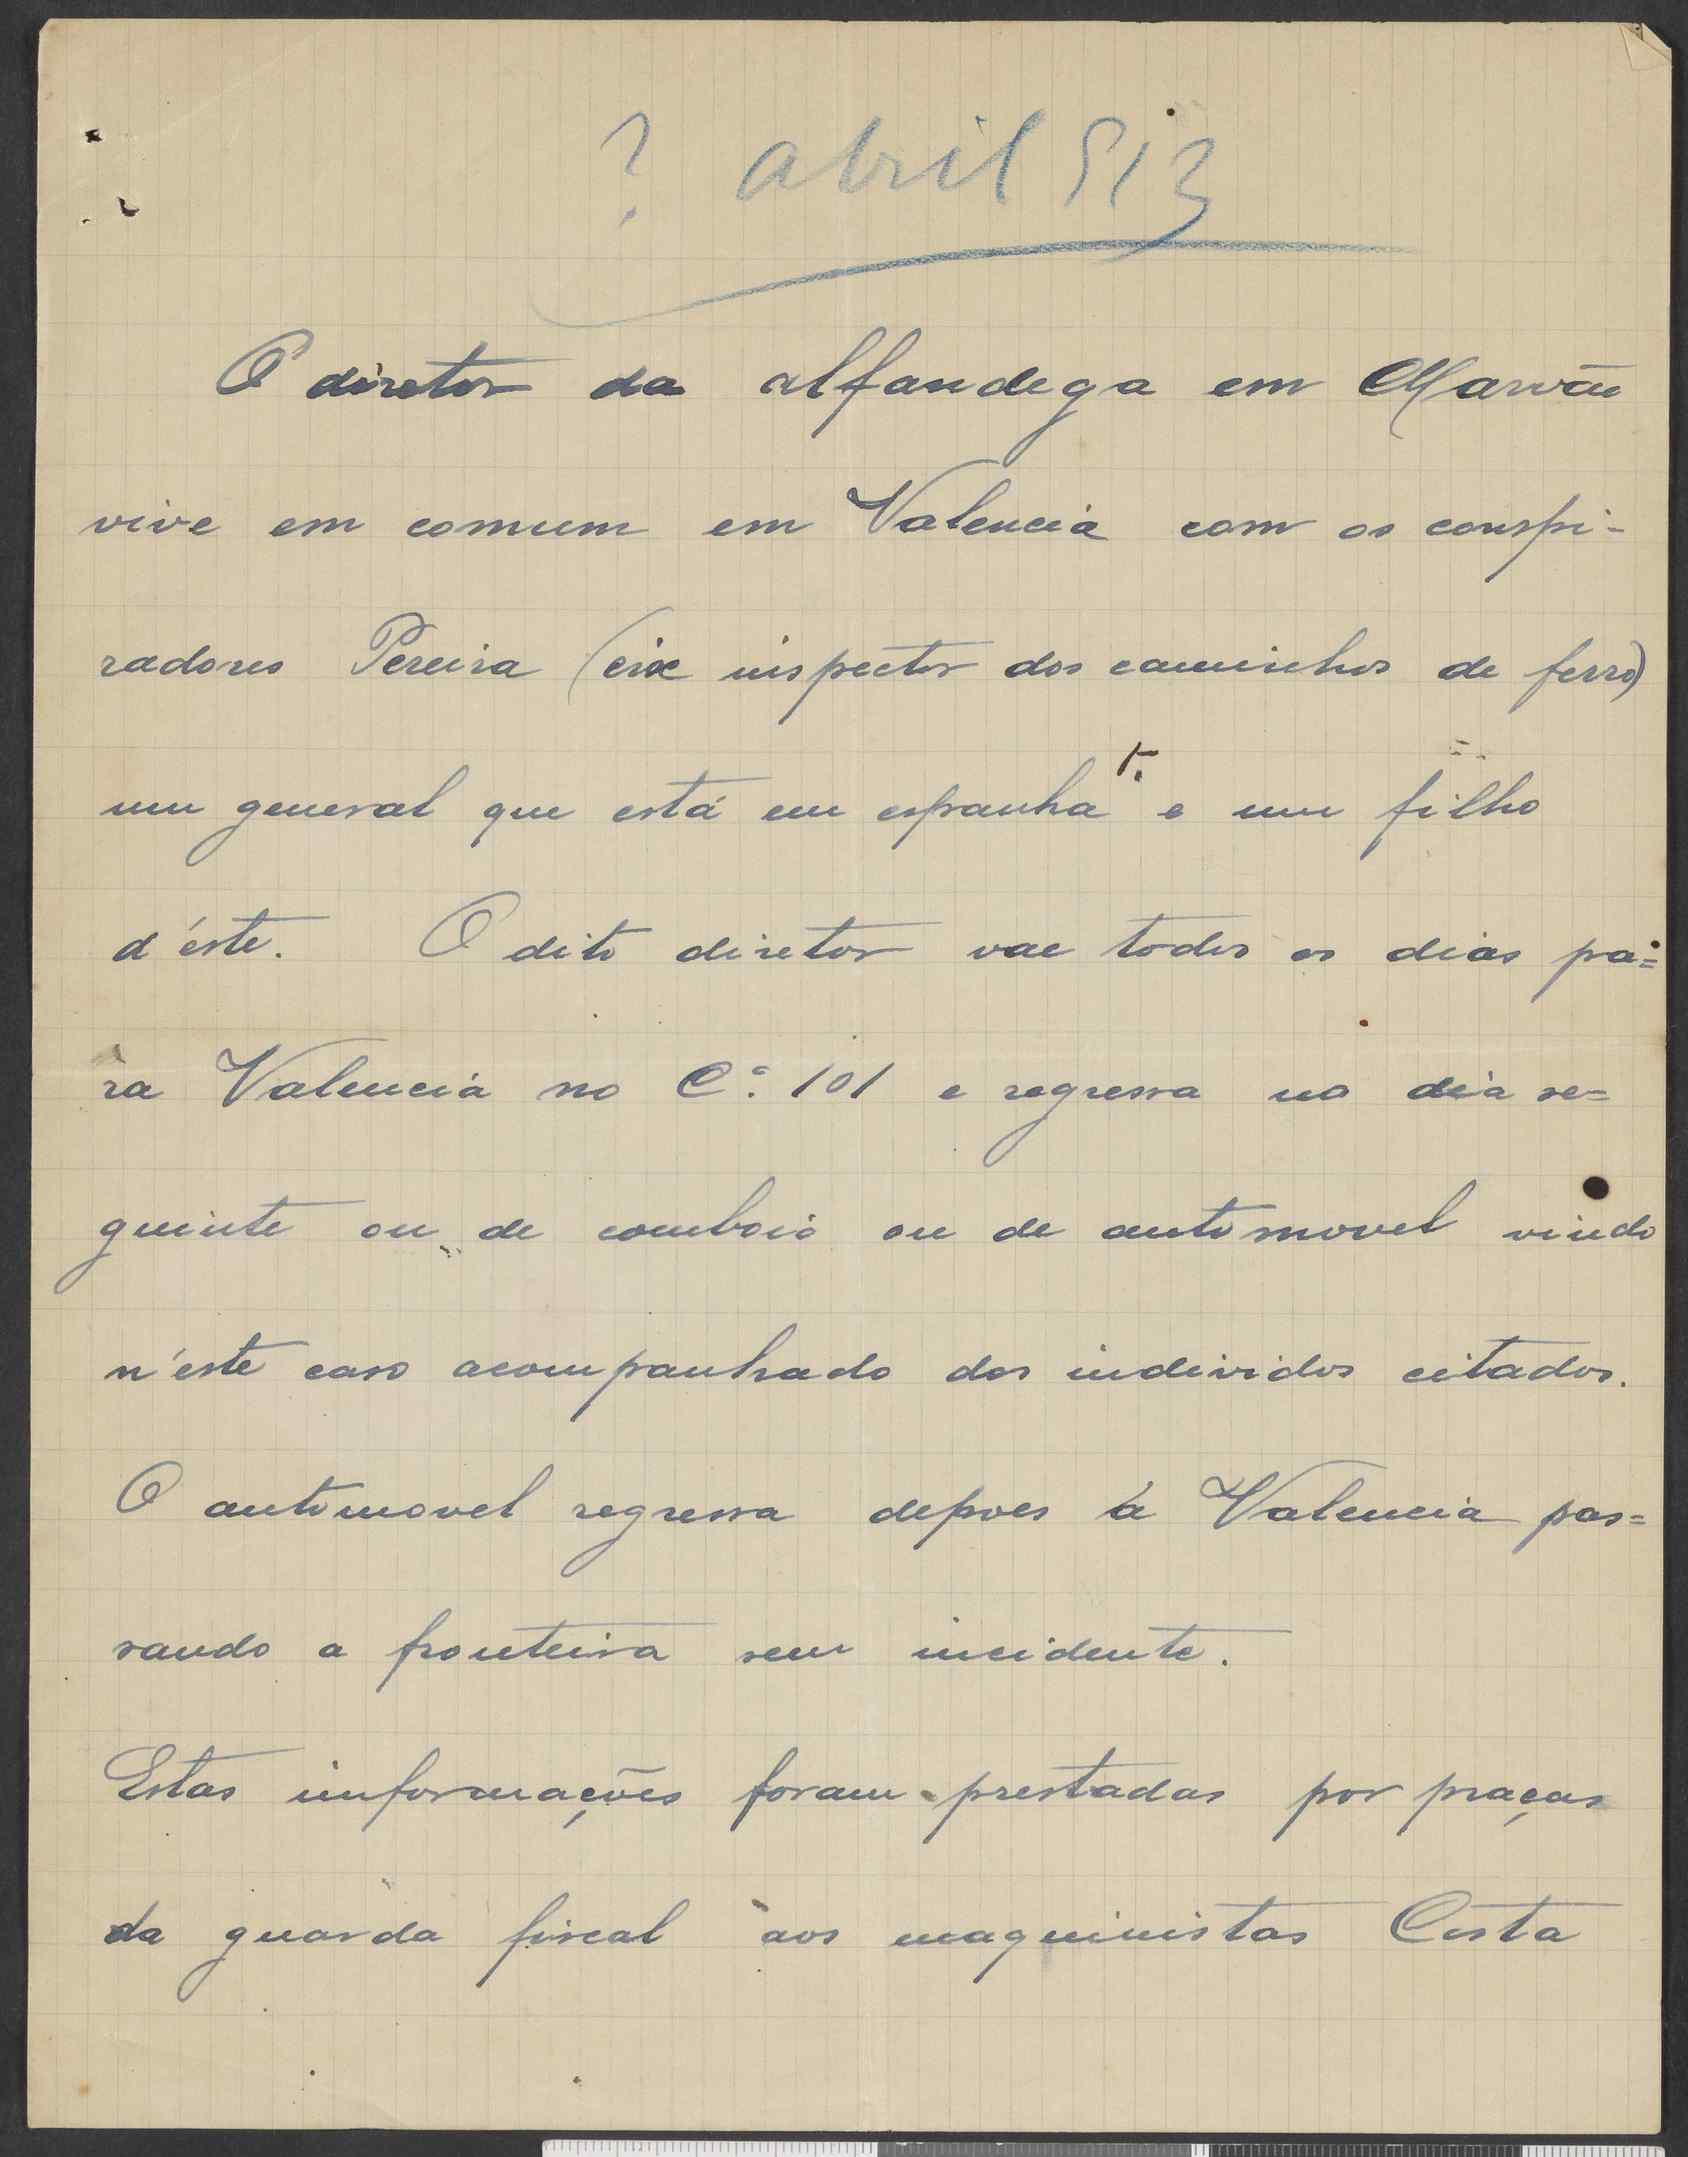 ? abril 913
O diretor da alfandega em Marvão
vive em comum em Valencia com os conspi-
radores Pereira (eix inspector dos caminhos de ferro)
um general que está em espanha e um filho
d'éste. O dito diretor vae todos os dias pa=
ra Valencia no C.º 101 e regressa no dia se=
guinte ou de comboio ou de automovel vindo
n'éste caso acompanhado dos individos citados.
O automovel regressa depoes á Valencia pas=
sando a fronteira sem incidente.
Estas informações foram prestadas por praças
da guarda fiscal aos maquinistas Costa